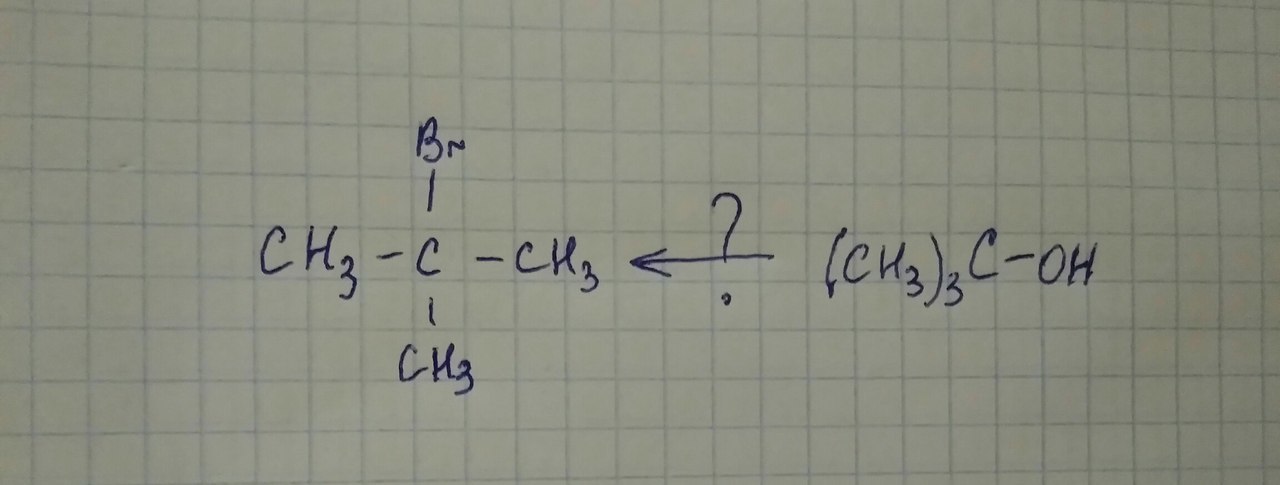 Br
CH₃-C-CH₃ ←?- (CH₃)₃C-OH
CH₃